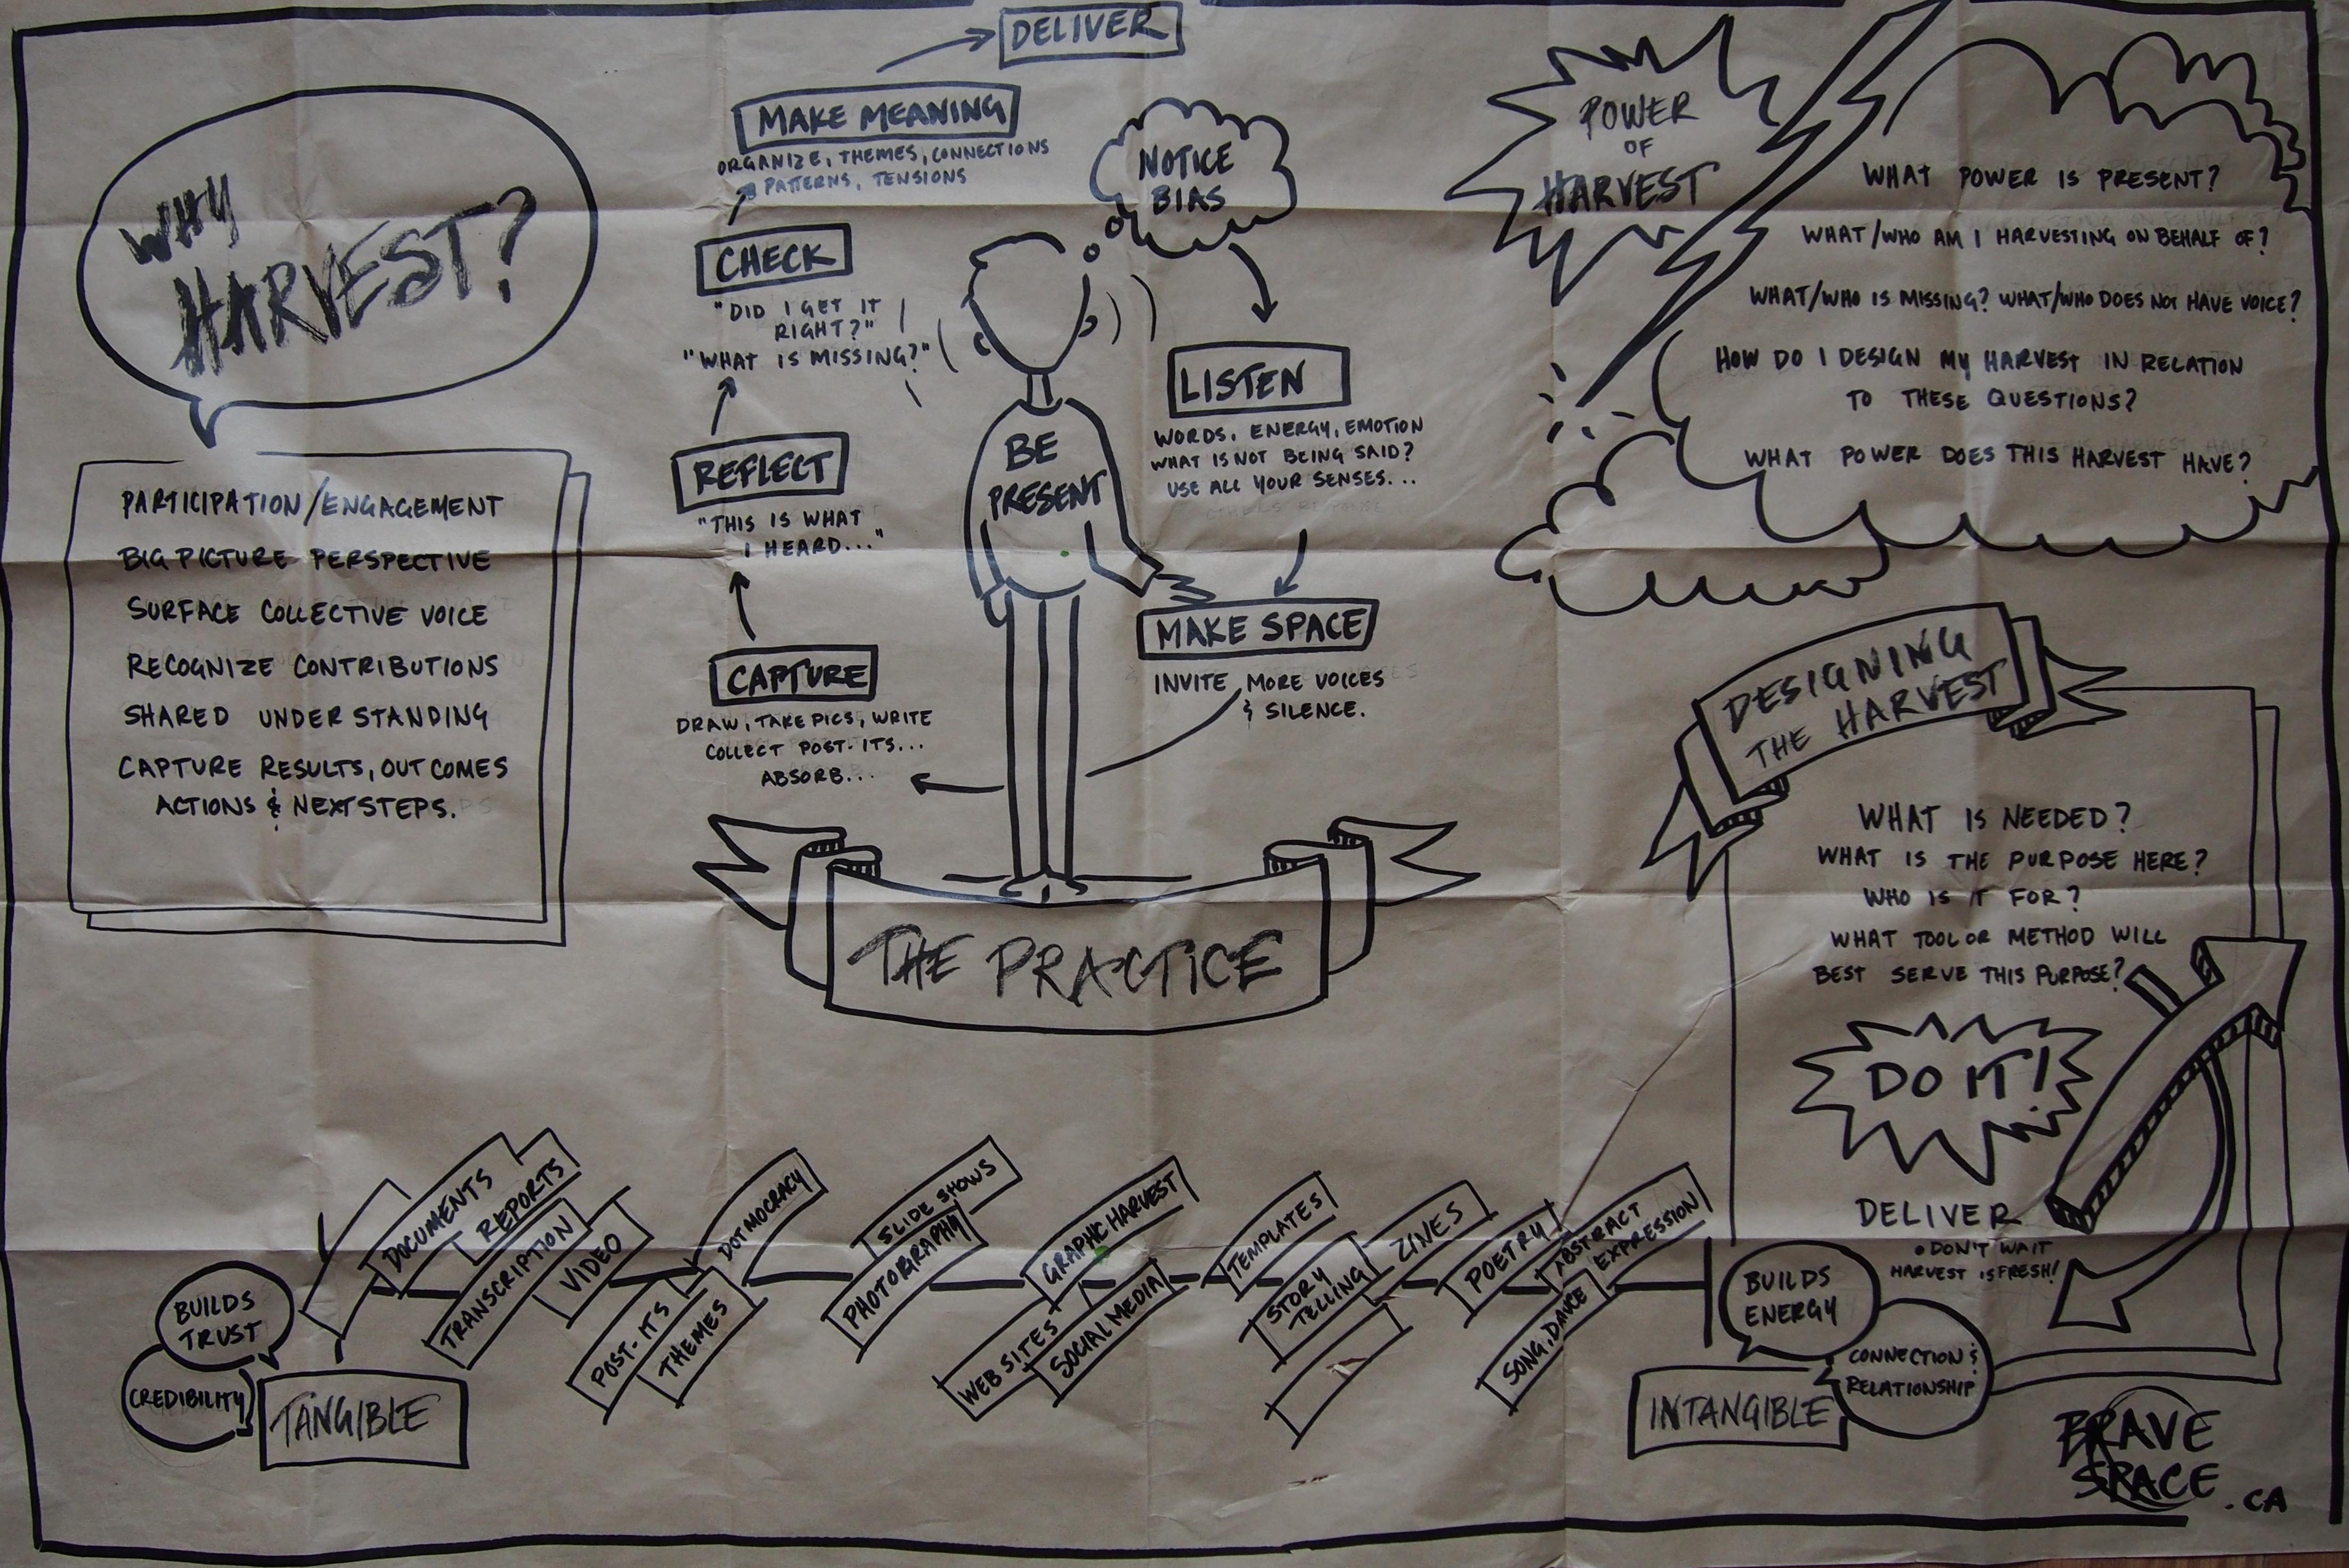 WHY
HARVEST?
PARTICIPATION/ENGAGEMENT
BIG PICTURE PERSPECTIVE
SURFACE COLLECTIVE VOICE
RECOGNIZE CONTRIBUTIONS
SHARED UNDERSTANDING
CAPTURE RESULTS, OUTCOMES
ACTIONS & NEXT STEPS.
DELIVER
MAKE MEANING
ORGANIZE, THEMES, CONNECTIONS
PATTERNS, TENSIONS
CHECK
"DID I GET IT
RIGHT?"
"WHAT IS MISSING?"
REFLECT
"THIS IS WHAT
I HEARD..."
CAPTURE
DRAW, TAKE PICS, WRITE
COLLECT POST-ITS...
ABSORB...
NOTICE
BIAS
BE
PRESENT
LISTEN
WORDS, ENERGY, EMOTION
WHAT IS NOT BEING SAID?
USE ALL YOUR SENSES...
MAKE SPACE
INVITE MORE VOICES
& SILENCE.
THE PRACTICE
POWER
OF
HARVEST
WHAT POWER IS PRESENT?
WHAT/WHO AM I HARVESTING ON BEHALF OF?
WHAT/WHO IS MISSING? WHAT/WHO DOES NOT HAVE VOICE?
HOW DO I DESIGN MY HARVEST IN RELATION
TO THESE QUESTIONS?
WHAT POWER DOES THIS HARVEST HAVE?
DESIGNING
THE HARVEST
WHAT IS NEEDED?
WHAT IS THE PURPOSE HERE?
WHO IS IT FOR?
WHAT TOOL OR METHOD WILL
BEST SERVE THIS PURPOSE?
DO IT!
DELIVER
• DON'T WAIT
HARVEST IS FRESH!
BUILDS
TRUST
CREDIBILITY
TANGIBLE
DOCUMENTS
REPORTS
TRANSCRIPTION
VIDEO
POST-ITS
THEMES
DOTMOCRACY
SLIDE SHOWS
PHOTOGRAPHY
GRAPHIC HARVEST
WEB SITES
SOCIAL MEDIA
TEMPLATES
STORY
TELLING
ZINES
POETRY
ABSTRACT
EXPRESSION
SONG, DANCE
BUILDS
ENERGY
CONNECTION &
RELATIONSHIP
INTANGIBLE
BRAVE
SPACE
.CA